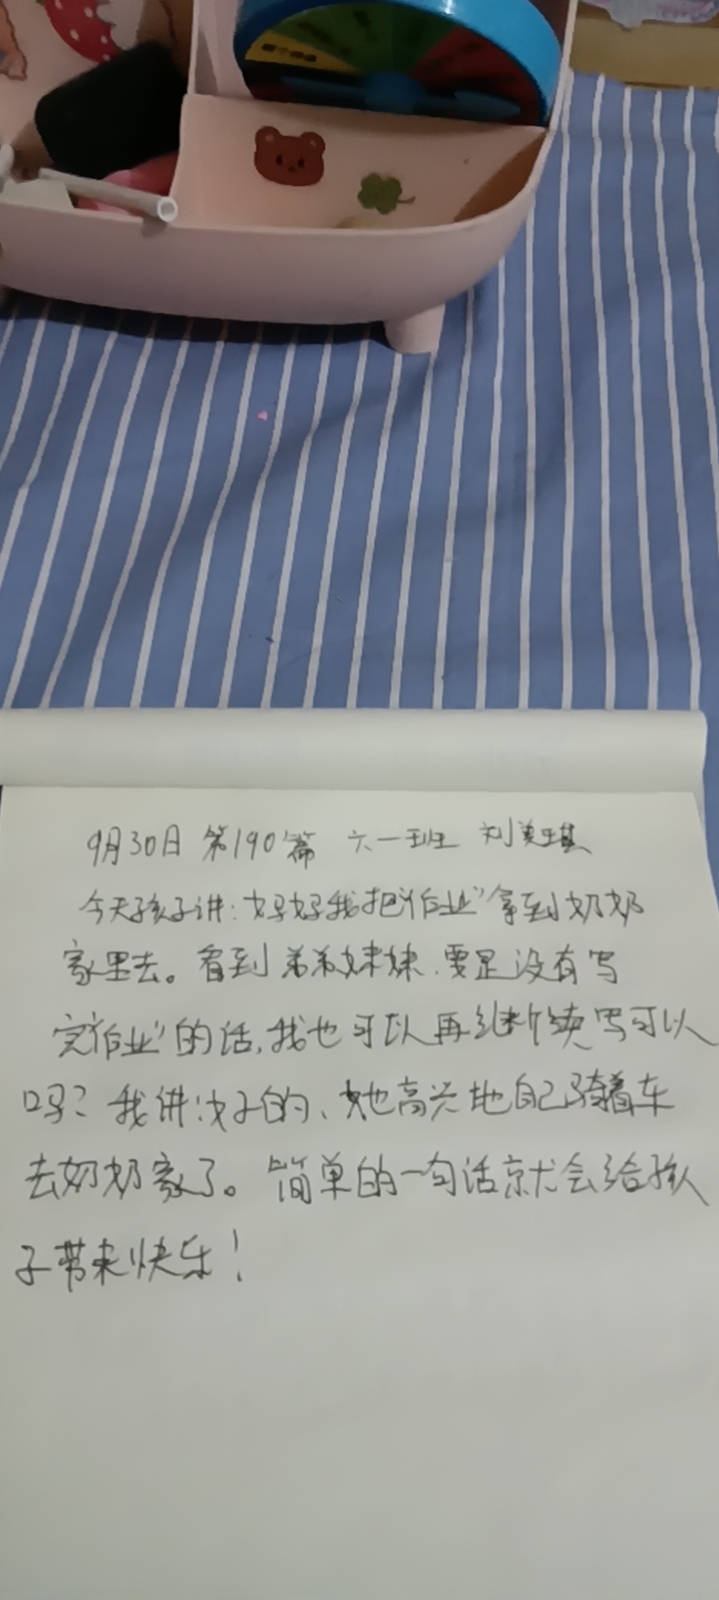 9月30日 第190篇 六一班 刘美琪
今天孩子讲:妈妈我把“作业”拿到奶奶
家里去。看到弟弟妹妹、要是没有写
完“作业”的话,我也可以再继续写可以
吗?我讲:好的、她高兴地自己骑着车
去奶奶家了。简单的一句话就会给孩
子带来快乐!